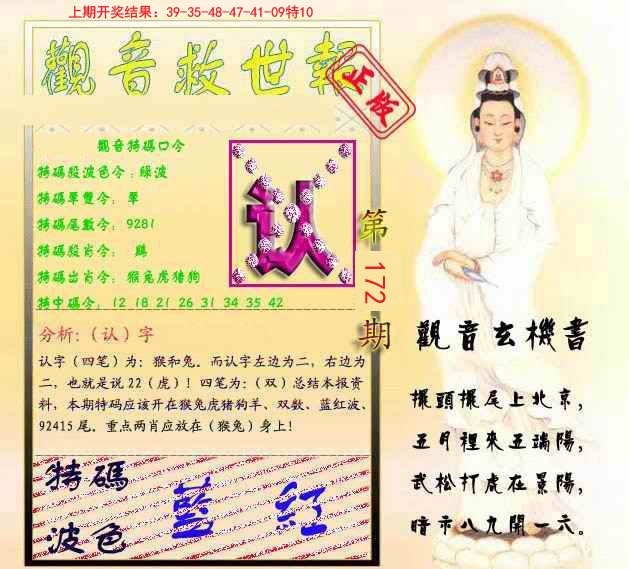 上期开奖结果：39-35-48-47-41-09特10
觀音救世報
正版
觀音特碼口令
特碼段波色令：綠波
特碼單雙令： 單
特碼尾數令： 9281
特碼出肖令： 猴兔虎猪狗
特中碼令： 12 18 21 26 31 34 35 42
认
第172期
分析:（认）字
认字（四笔）为：猴和兔。而认字左边为二，右边为
二，也就是说22（虎）！四笔为：（双）总结本报资
料，本期特码应该开在猴兔虎猪狗羊、双数、蓝红波、
92415尾。重点两肖应放在（猴兔）身上！
特碼
波色
藍 紅
觀音玄機書
擺頭擺尾上北京，
五月裡來五端陽，
武松打虎在景陽，
暗示八九開一六。